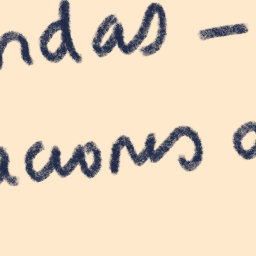 ndas –
aciones o